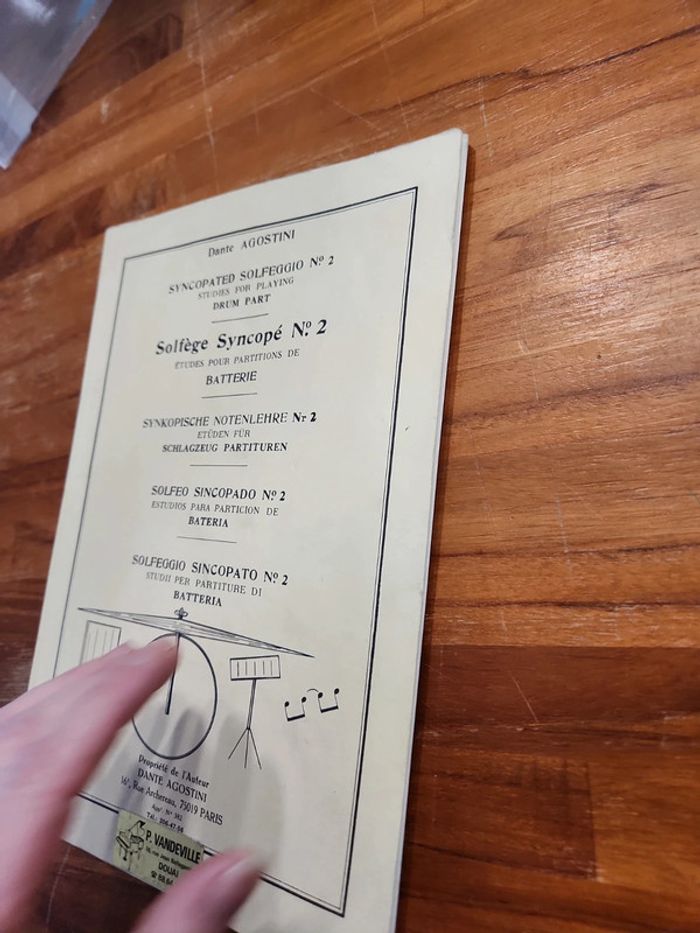 Dante AGOSTINI
SYNCOPATED SOLFEGGIO Nº 2
STUDIES FOR PLAYING
DRUM PART
Solfège Syncopé Nº 2
ÉTUDES POUR PARTITIONS DE
BATTERIE
SYNKOPISCHE NOTENLEHRE Nr 2
ETÜDEN FÜR
SCHLAGZEUG PARTITUREN
SOLFEO SINCOPADO Nº 2
ESTUDIOS PARA PARTICION DE
BATERIA
SOLFEGGIO SINCOPATO Nº 2
STUDII PER PARTITURE DI
BATTERIA
Propriété de l'Auteur
DANTE AGOSTINI
Rue Archereau, 75019 PARIS
P. VANDEVILLE
DOUAI